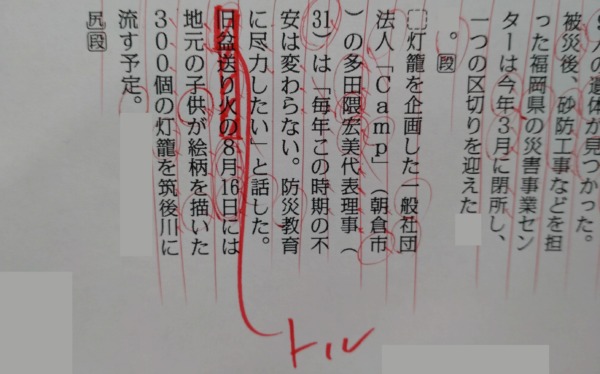 人の遺体が見つかった。
被災後、砂防工事などを担
った福岡県の災害事業セン
ターは今年3月に閉所し、
一つの区切りを迎えた
。段
灯籠を企画した一般社団
法人「Camp」(朝倉市
)の多田隈宏美代表理事(
31)は「毎年この時期の不
安は変わらない。防災教育
に尽力したい」と話した。
旧盆送り火の8月16日には
地元の子供が絵柄を描いた
300個の灯籠を筑後川に
流す予定。
尻段
トル